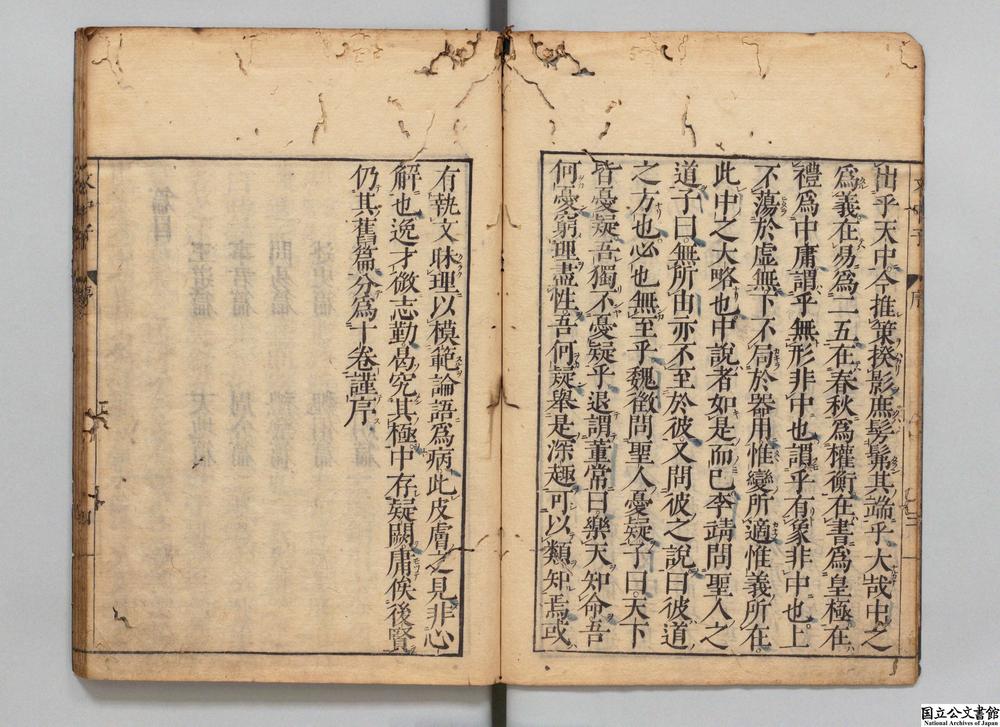 出乎天中今推策揆影庶髣髴其端乎大哉中之
爲義在易爲二五在春秋爲權衡在書爲皇極在
禮爲中庸謂乎無形非中也謂乎有象非中也上
不蕩於虛無下不局於器用惟變所適惟義所在
此中之大略也中說者如是而已李靖問聖人之
道子曰無所由亦不至於彼又問彼之說曰彼道
之方也必也無至乎魏徵問聖人憂疑子曰天下
皆憂疑吾獨不憂疑乎退謂董常曰樂天知命吾
何憂窮理盡性吾何疑舉是深趣可以類知焉或
有執文昧理以模範論語爲病此皮膚之見非心
解也逸才微志勤曷究其極中存疑闕庸俟後賢
仍其舊篇分爲十卷謹序
国立公文書館
National Archives of Japan